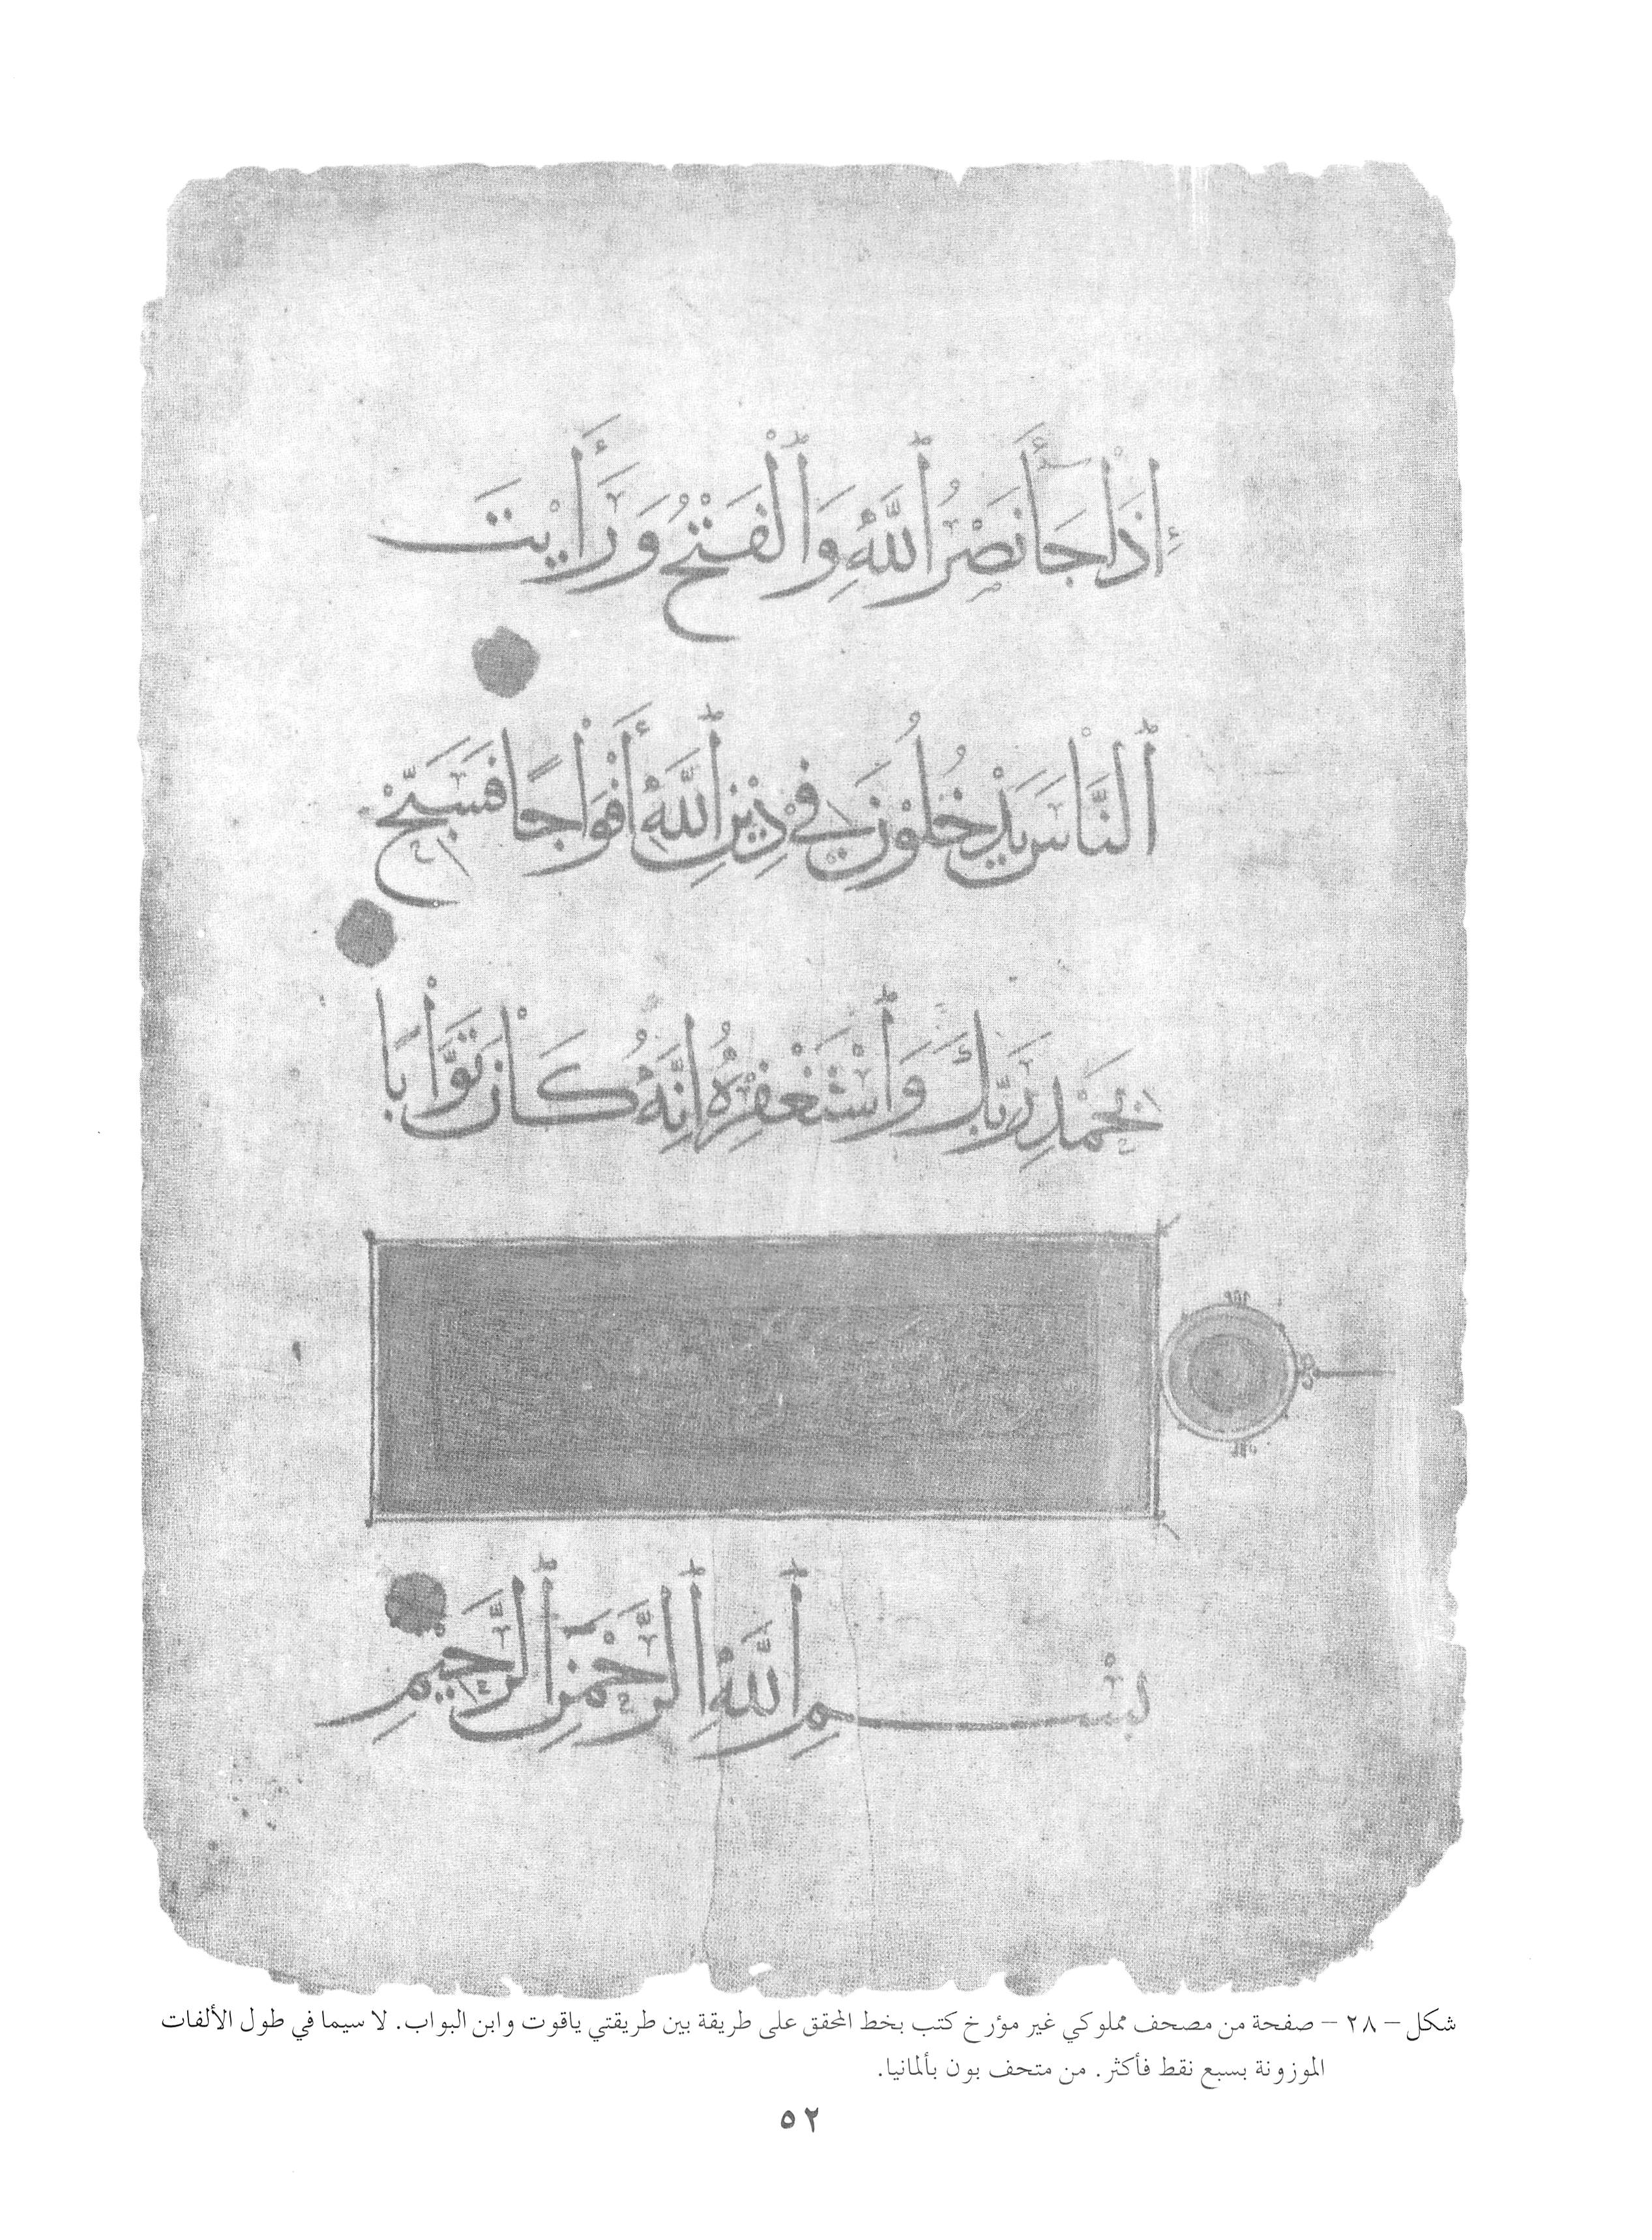 إِذَا جَآءَ نَصْرُ ٱللَّهِ وَٱلْفَتْحُ وَرَأَيْتَ
ٱلنَّاسَ يَدْخُلُوْنَ فِي دِيْنِ ٱللَّهِ أَفْوَاجًا فَسَبِّحْ
بِحَمْدِ رَبِّكَ وَٱسْتَغْفِرْهُ إِنَّهُ كَانَ تَوَّابًا
بِسْمِ ٱللَّهِ ٱلرَّحْمَنِ ٱلرَّحِيْمِ
شكل – ٢٨ – صفحة من مصحف مملوكي غير مؤرخ كتب بخط المحقق على طريقة بين طريقتي ياقوت وابن البواب. لا سيما في طول الألفات
الموزونة بسبع نقط فأكثر. من متحف بون بألمانيا.
٥٢